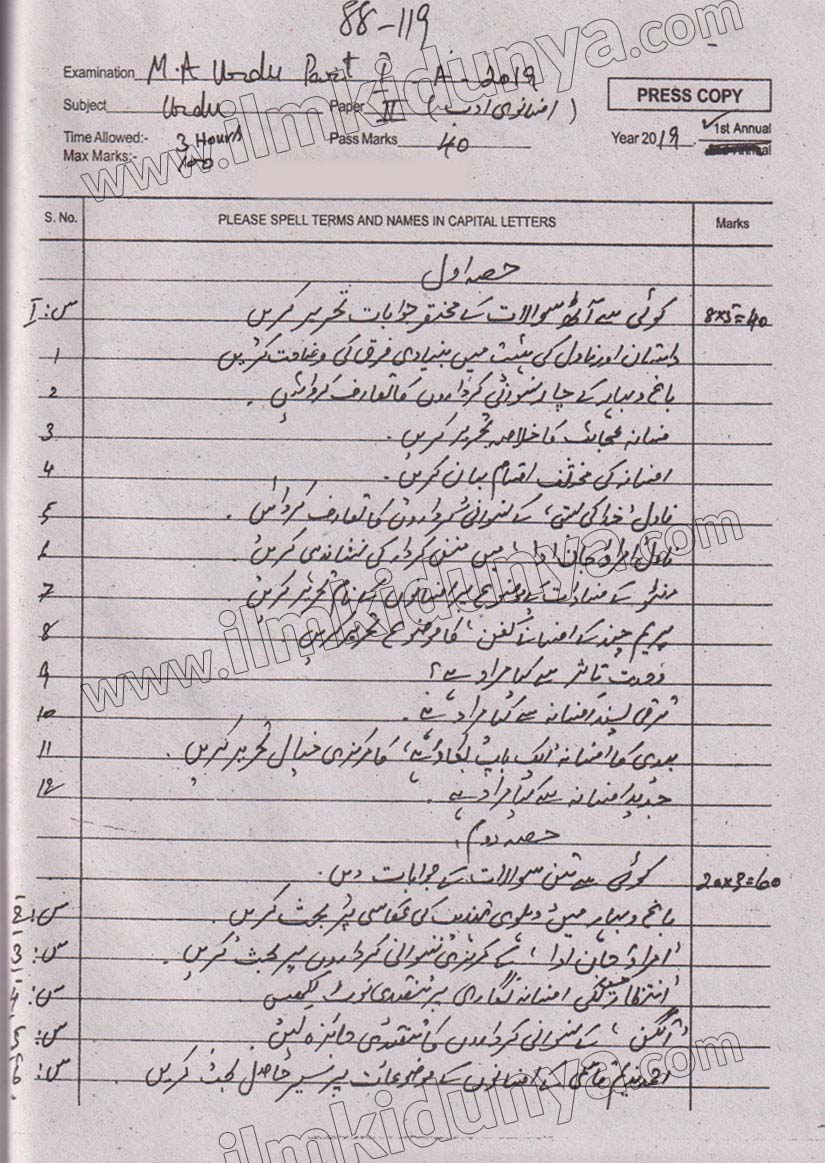 88-119
Examination M.A Urdu Part I A-2019
Subject Urdu Paper II (افسانوی ادب)
PRESS COPY
Time Allowed:- 3 Hours Pass Marks 40 Year 2019 1st Annual
Max Marks:- 100
S. No. PLEASE SPELL TERMS AND NAMES IN CAPITAL LETTERS Marks
حصہ اول
س:I کوئی سے آٹھ سوالات کے مختصر جوابات تحریر کریں 8x5=40
1 داستان اور ناول کی ہیئت میں بنیادی فرق کی وضاحت کریں
2 باغ و بہار کے چار نسوانی کرداروں کا تعارف کروائیں۔
3 فسانہ عجائب کا خلاصہ تحریر کریں۔
4 افسانہ کی مختلف اقسام بیان کریں۔
5 ناول 'خدا کی بستی' کے نسوانی کرداروں کا تعارف کروائیں۔
6 ناول 'امراؤ جان ادا' میں منفی کردار کی نشاندہی کریں۔
7 منٹو کے فسادات کے موضوع پر افسانوں کے نام تحریر کریں۔
8 پریم چند کے افسانہ 'کفن' کا موضوع تحریر کریں۔
9 وحدت تاثر سے کیا مراد ہے؟
10 ترقی پسند افسانہ سے کیا مراد ہے۔
11 بیدی کا افسانہ 'ایک باپ بکاؤ ہے' کا مرکزی خیال تحریر کریں۔
12 جدید افسانہ سے کیا مراد ہے۔
حصہ دوم:
کوئی سے تین سوالات کے جوابات دیں۔ 20x3=60
س:2 باغ و بہار میں دہلوی تہذیب کی عکاسی پر بحث کریں۔
س:3 'امراؤ جان ادا' کے مرکزی نسوانی کرداروں پر بحث کریں۔
س:4 انتظار حسین کی افسانہ نگاری پر تنقیدی نوٹ لکھیں
س:5 'آنگن' کے نسوانی کرداروں کا تنقیدی جائزہ لیں۔
س:6 احمد ندیم قاسمی کے افسانوں کے موضوعات پر سیر حاصل بحث کریں۔
www.ilmkidunya.com
www.ilmkidunya.com
www.ilmkidunya.com